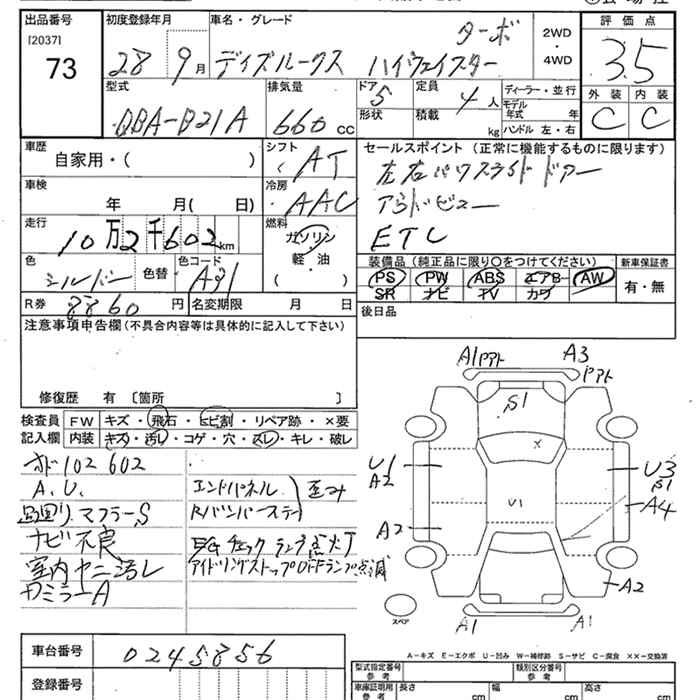 出品番号
[2037]
73
初度登録年月
28 9月
車名・グレード
ターボ
デイズルークス ハイウェイスター
2WD
・
4WD
評価点
3.5
外装 内装
C C
型式
DBA-B21A
排気量
660 cc
ドア 5
形状
定員 4人
積載 kg
ディーラー・並行
モデル
年式 年
ハンドル 左・右
車歴
自家用・( )
シフト
AT
車検
年 月( 日)
冷房
AAC
走行
10万2千602km
燃料
ガソリン
軽・油
( )
色
シルバー
色替
色コード
A91
R券 8860 円
名変期限 月 日
セールスポイント (正常に機能するものに限ります)
左右パワスライドドアー
アラドビュー
ETC
装備品(純正品に限り○をつけてください)
PS PW ABS エアB AW
SR ナビ TV カワ
新車保証書
有・無
後日品
注意事項申告欄(不具合内容等は具体的に記入して下さい)
修復歴 有 〔箇所 〕
検査員 FW キズ・飛石・ヒビ割・リペア跡・×要
記入欄 内装 キズ・汚レ・コゲ・穴・スレ・キレ・破レ
オド102602
A.U.
マフラーS
ナビ不良
室内ヤニ汚レ
カミラーA
エンドパネル
Rバンパーステー
歪み
EGチェックランプ点灯
アイドリングストップOFFランプ点滅
A1 アト
A3
アト
S1
×
U1
A2
U3
S1
A4
U1
A2
A2
スペア
A1
A1
A-キズ E-エクボ U-凹み W-補修跡 S-サビ C-腐食 ××-交換済
車台番号
0245856
登録番号
型式指定番号
参考
類別区分番号
参考
車庫証明用
参考
長さ cm
幅 cm
高さ cm